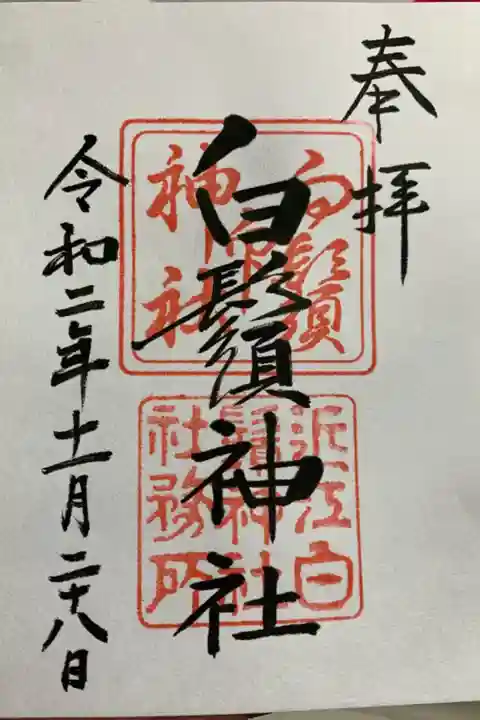 奉拝
白鬚神社
令和二年十一月二十八日
白鬚
神社
近江白
鬚神社
社務所